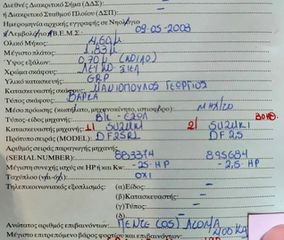 Διεθνές Διακριτικό Σήμα (ΔΔΣ): –
ή Διακριτικό Σταθμού Πλοίου (ΔΣΠ): –
Ημερομηνία αρχικής εγγραφής σε Νηολόγιο
Λεμβολόγιο/Β.Ε.Μ.Σ: 09-05-2003
Ολικό Μήκος: 4,60μ
Μέγιστο πλάτος: 1,83μ
Ύψος εξάλων: 0,70μ (ΚΟΙΛΟ)
Χρώμα σκάφους: ΛΕΥΚΟ
Υλικό κατασκευής: GRP
Κατασκευαστής σκάφους: ΜΑΝΙΟΠΟΥΛΟΣ ΓΕΩΡΓΙΟΣ
Τύπος σκάφους: ΒΑΡΚΑ
Μέσο πρόωσης (κωπήλατο, μηχανοκίνητο, ιστιοφόρο):
Τύπος-είδος μηχανής: ΒΟΗΘ.
Κατασκευαστής μηχανής: 1) SUZUKI 2) SUZUKI
Πρότυπο σειρά (MODEL): DF25RL DF2,5
Αριθμός σειράς παραγωγής μηχανής
(SERIAL NUMBER): 883374 895684
Μέγιστη συνεχής ισχύς σε HP ή Kw: -25 HP -2,5 HP
Ταχύπλοο (ναι-όχι) ΟΧΙ
Τηλεπικοινωνιακός εξοπλισμός: (α)Είδος: –
(β)Κατασκευαστής: –
(γ)Τύπος: –
(δ) –
Ανώτατος αριθμός επιβαινόντων: ΠΕΝΤΕ (05) ΑΤΟΜΑ
Μέγιστο επιτρεπόμενο βάρος φορτίου και επιβαινόντων: